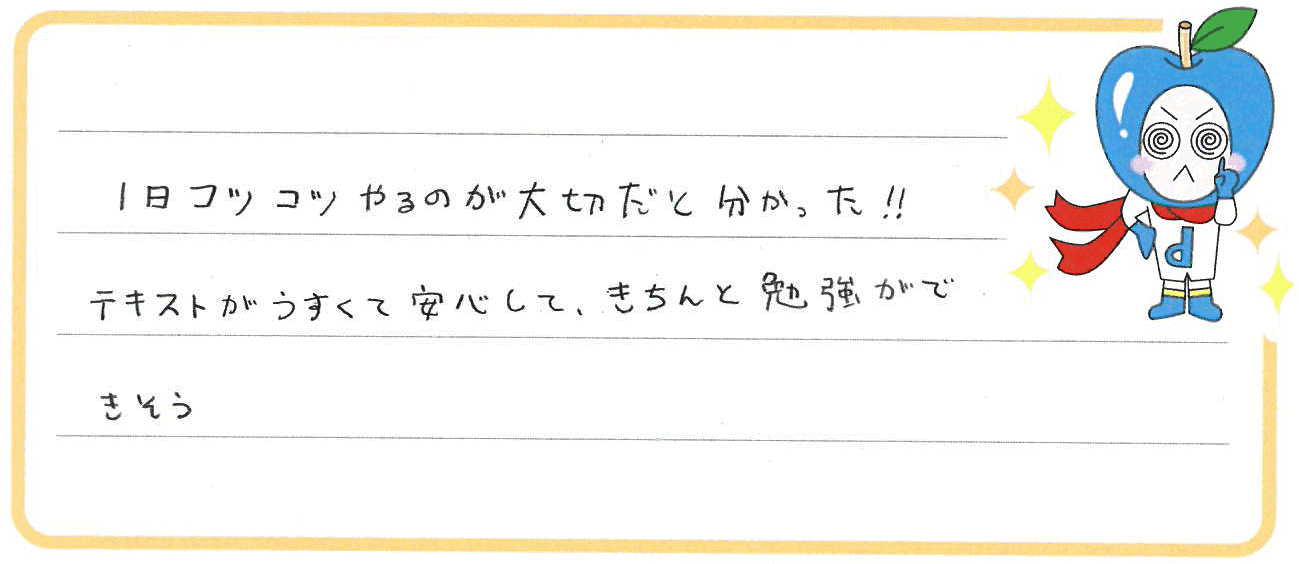 1日コツコツやるのが大切だと分かった!!
テキストがうすくて安心して、きちんと勉強がで
きそう
d